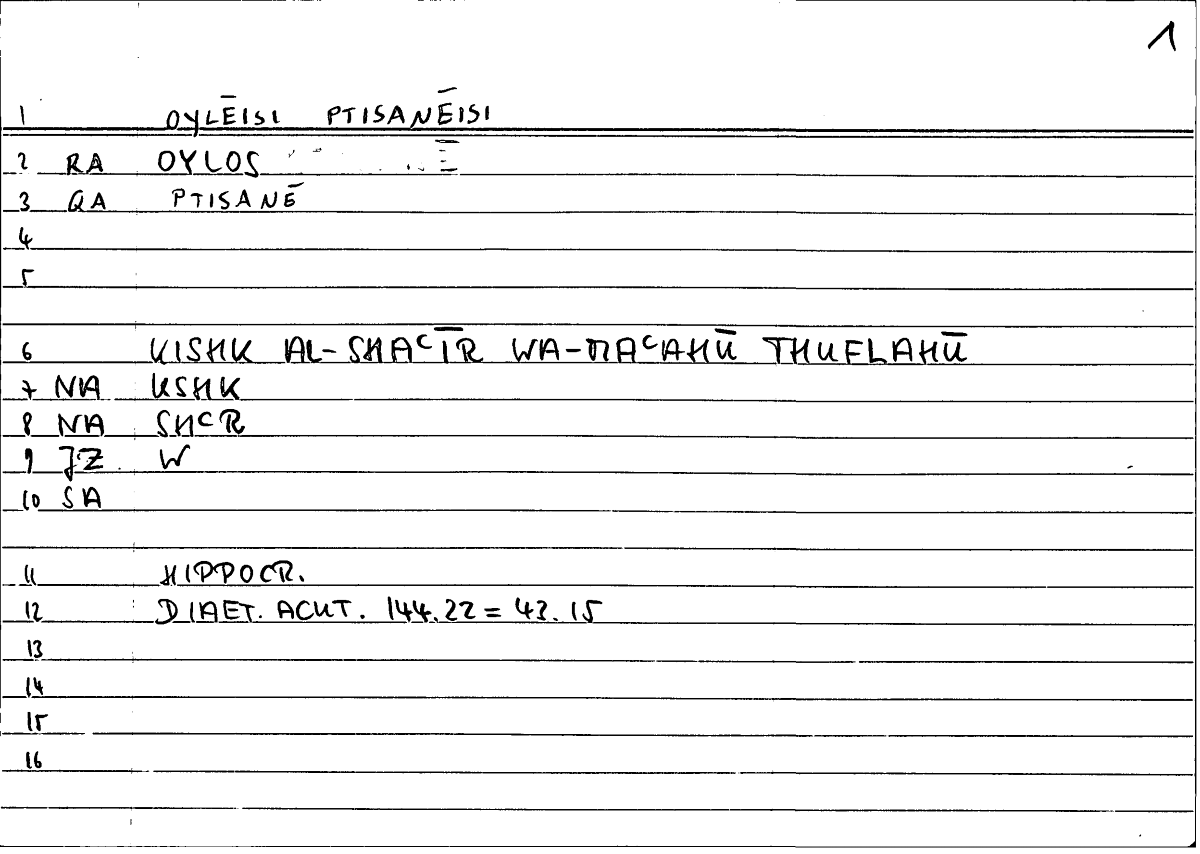 1
1 OYLĒISI PTISANĒISI
2 RA OYLOS
3 QA PTISANĒ
4
5
6 KISHK AL-SHAᶜĪR WA-MAᶜAHŪ THUFLAHŪ
7 NA KSHK
8 NA SHᶜR
9 JZ W
10 SA
11 HIPPOCR.
12 DIAET. ACUT. 144.22 = 43.15
13
14
15
16